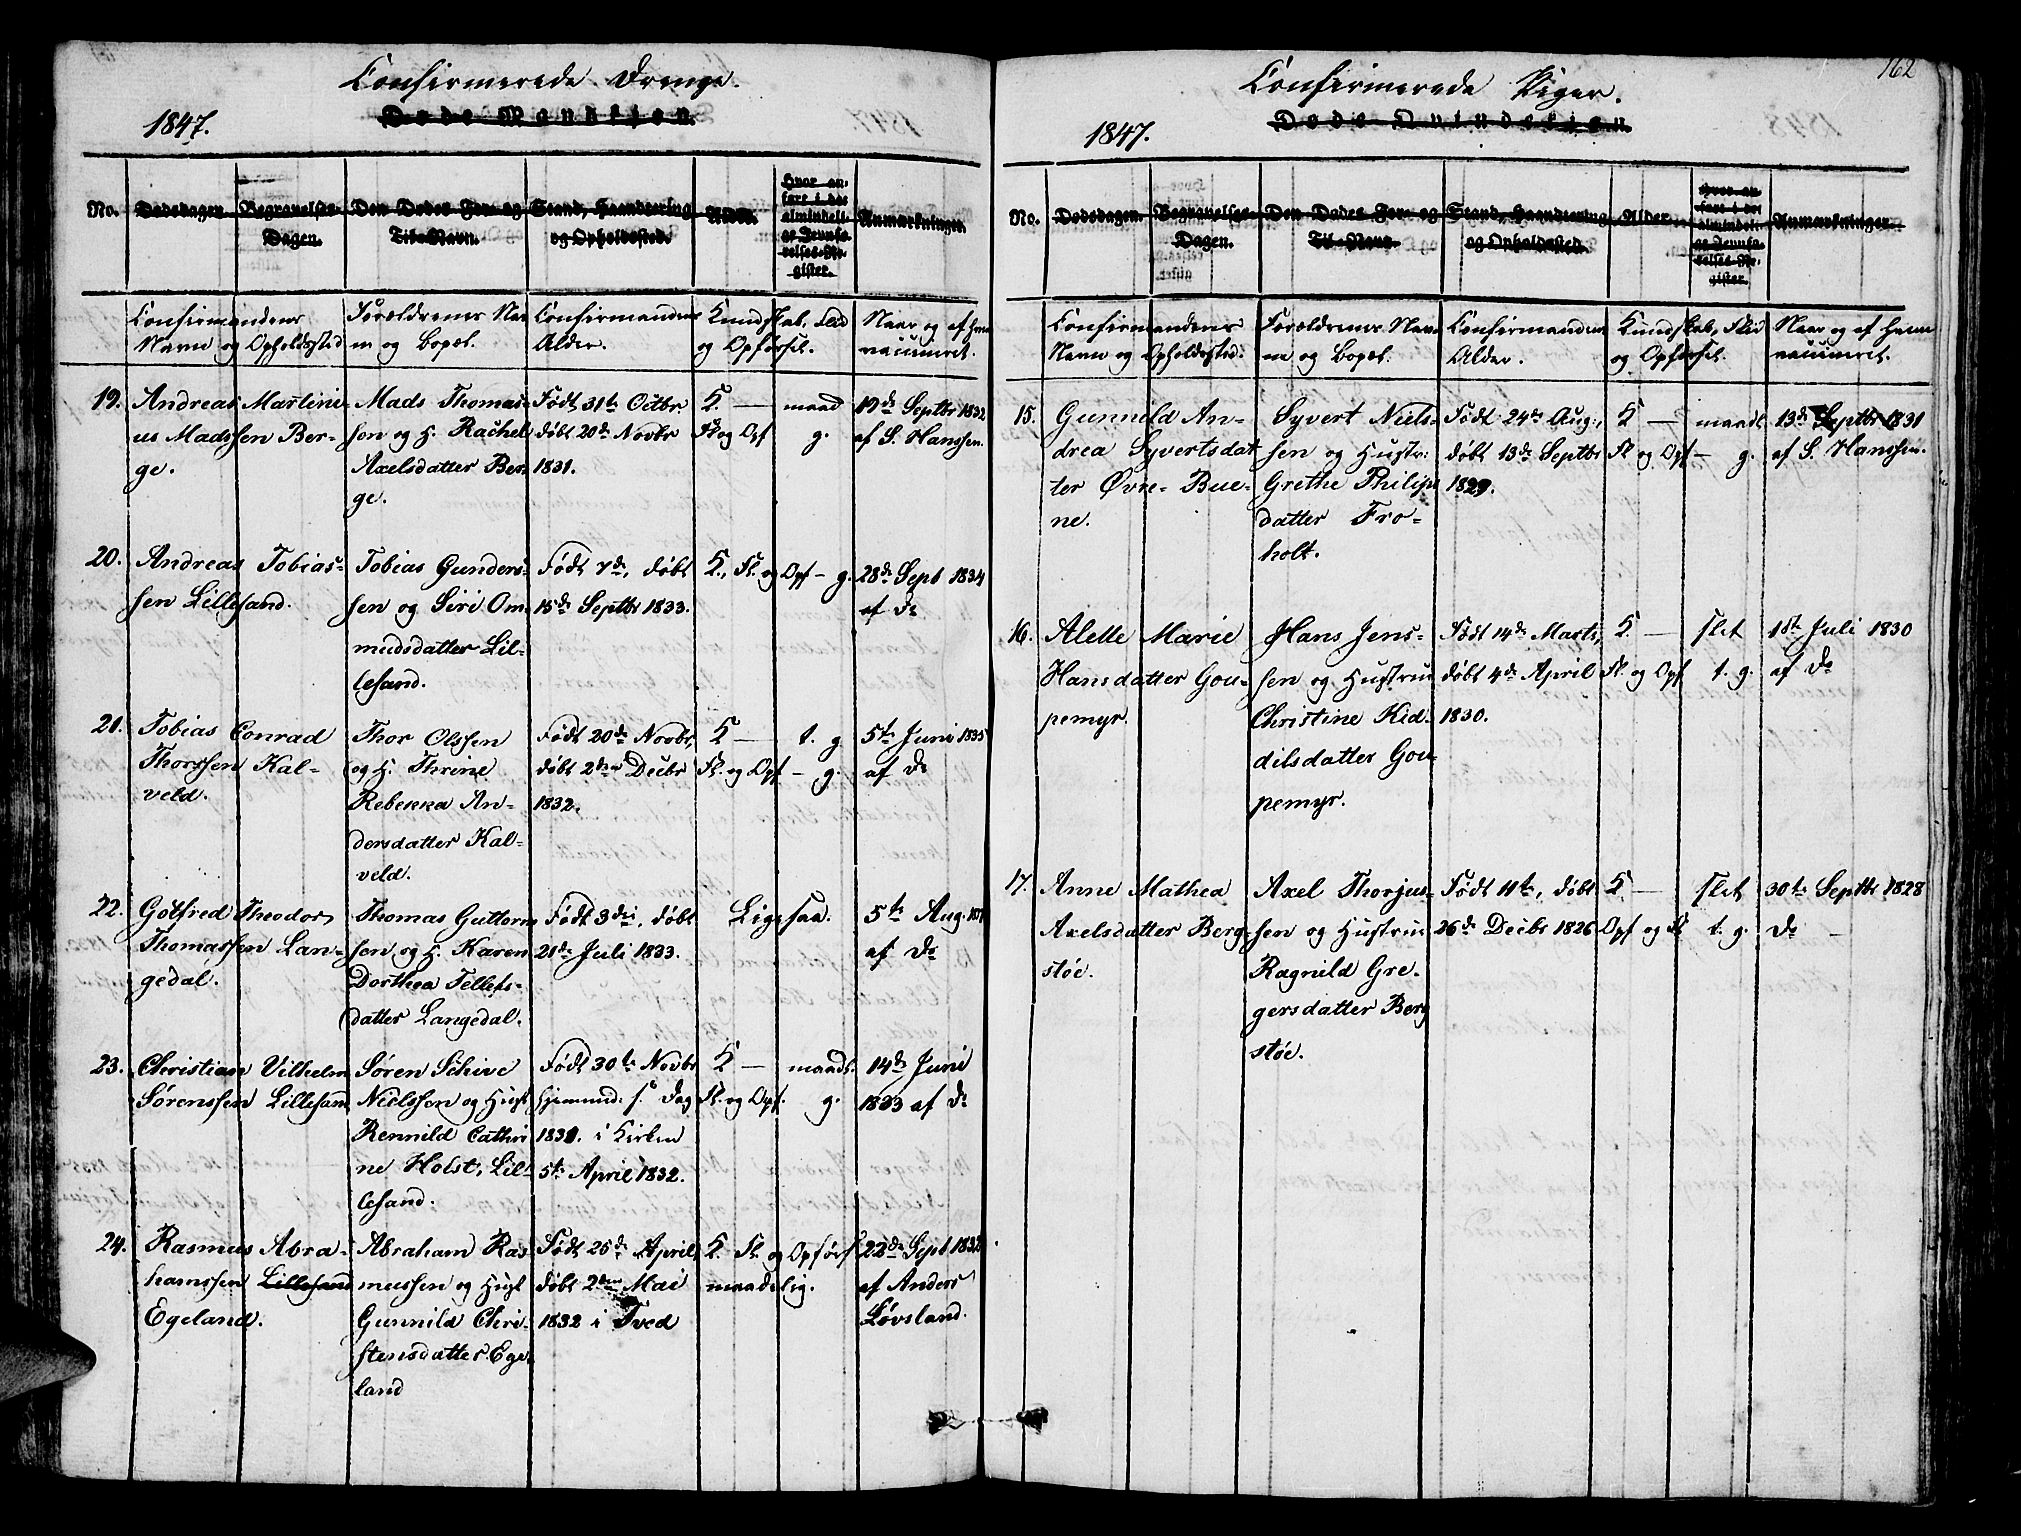 Confirmerede Drenge.
1847.
Døde Mandkjøn.
No.
Dødsdagen.
Begravelses-
Dagen.
Den Dødes For- og
Til-Navn.
Stand, Haandtering
og Opholdssted.
Alder.
Hvor an-
føre i det
almindeli-
ge Jevnfø-
relses-Re-
gister.
Anmærkninger.
Confirmandens
Navn og Opholdssted
Forældrenes Nav
ne og Bopæl.
Confirmandens
Alder.
Kundskab, Flid
og Opførsel.
Naar og af hvem
vaccineret.
19. Andreas Martini-
us Madssen Ber-
ge.
Mads Thomas-
sen og H. Rachel
Axelsdatter Ber
ge.
Født 31te Octbr
døbt 20de Novbr
1831.
K. — maad
Fl. og Opf g.
19de Septbr 1832
af S. Hanssen.
20. Andreas Tobias-
sen Lillesand.
Tobias Gunders-
sen og Siri Om-
mudsdatter Lil-
lesand.
Født 7de, døbt
15de Septbr 1833.
K., Fl. og Opf – g.
28de Sept 1834
af Do
21. Tobias Conrad
Thorssen Kal-
veld.
Thor Olssen
og H. Thrine
Rebekka An-
dersdatter Kal-
veld.
Født 20de Novbr,
døbt 2den Decbr
1832.
K — t. g
Fl. og Opf – g.
5te Juni 1835
af Do
22. Gotfred Theodor
Thomassen Lan-
gedal.
Thomas Guttorm
sen og H. Karen
Dorthea Tellefs-
datter Langedal.
Født 3die, døbt
21de Juli 1833.
Ligesaa.
5te Aug.
af Do
23. Christian Vilhelm
Sørenssen Lillesand
Søren Schive
Nielssen og Hust
Rennild Cathri
ne Holst, Lil-
lesand.
Født 30te Novbr
hjemmed: s. Dag
1831. i Kirken
5te April 1832.
K — maadl.
Fl. og Opf. g.
14de Juni
1833 af Do
24. Rasmus Abra-
hamssen Lillesand
Egeland.
Abraham Ras-
mussen og Hust
Gunnild Chri-
stensdatter Ege-
land
Født 25de April,
døbt 2den Mai
1832 i Tved
K. Fl. og Opførs
maadelig.
22de Sept 1832
af Anders
Løvsland.
162
Confirmerede Piger.
1847.
Døde Qvindekjøn.
No.
Dødsdagen.
Begravelses-
Dagen.
Den Dødes For- og
Til-Navn.
Stand, Haandtering
og Opholdssted.
Alder.
Hvor an-
føre i det
almindeli-
ge Jevnfø-
relses-Re-
gister.
Anmærkninger.
Confirmandens
Navn og Opholdssted.
Forældrenes Nav
ne og Bopæl.
Confirmandens
Alder.
Kundskab, Flid
og Opførsel.
Naar og af hvem
vaccineret.
15. Gunnild An-
drea Syvertsdat
ter Øvre- Bue-
ne.
Syvert Niels-
sen og Hustr:
Grethe Philips
datter Fro-
holt.
Født 24de Aug:,
døbt 13de Septbr
1829.
K — maadl
Fl og Opf – g.
13de Septbr 1831
af S. Hanssen.
16. Alette Marie
Hansdatter Gou-
pemyr.
Hans Jens-
sen og Hustrue
Christine Kid-
dilsdatter Gou-
pemyr.
Født 14de Marts,
døbt 4de April
1830.
K. — Slet
Fl. og Opf t. g.
1ste Juli 1830
af Do
17. Anne Mathea
Axelsdatter Berg-
støe.
Axel Thorjus-
sen og Hustrue
Ragnild Gre-
gersdatter Berg
støe.
Født 11te, døbt
26de Decbr 1826
K — Slet
Opf og Fl t. g.
30te Septbr 1828
Do —